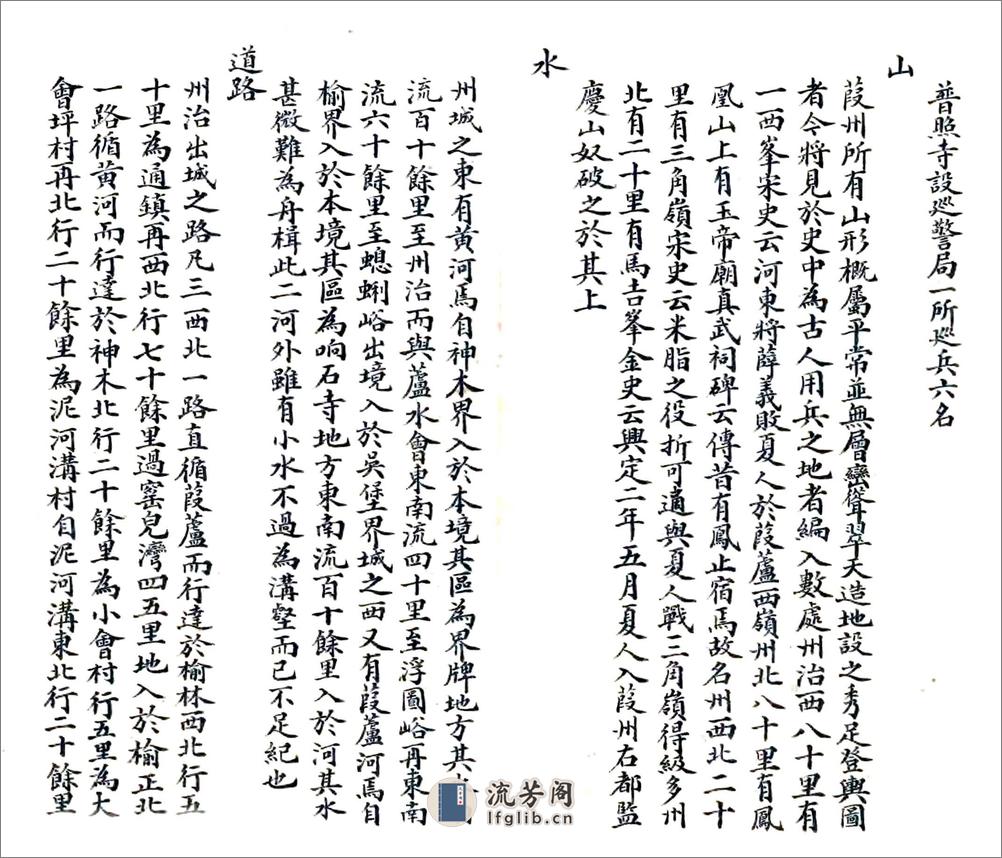 普照寺設巡警局一所巡兵六名
山
葭州所有山形概屬平常並無層巒聳翠天造地設之秀足登輿圖
者今將見於史中為古人用兵之地者編入數處州治西八十里有
一西峯宋史云河東將薛義敗夏人於葭蘆西嶺州北八十里有鳳
凰山上有玉帝廟真武祠碑云傳昔有鳳止宿焉故名州西北二十
里有三角嶺宋史云米脂之役折可適與夏人戰三角嶺得級多州
北有二十里有馬吉峯金史云興定二年五月夏人入葭州右都監
慶山奴破之於其上
水
州城之東有黄河焉自神木界入於本境其區為界牌地方其
流百十餘里至州治而與蘆水會東南流四十里至浮圖峪再東南
流六十餘里至螅蜊峪出境入於吳堡界城之西又有葭蘆河焉自
榆界入於本境其區為响石寺地方東南流百十餘里入於河其水
甚微難為舟楫此二河外雖有小水不過為溝壑而已不足紀也
道路
州治出城之路凡三西北一路直循葭蘆而行達於榆林西北行五
十里為通鎮再西北行七十餘里過窰兒灣四五里地入於榆正北
一路循黄河而行達於神木北行二十餘里為小會村行五里為大
會坪村再北行二十餘里為泥河溝村自泥河溝東北行二十餘里
流芳阁
lfglib.cn